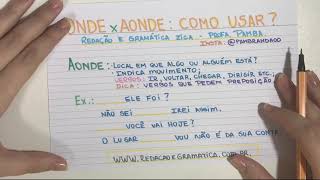 ONDE x AONDE: COMO USAR?
REDAÇÃO E GRAMÁTICA ZICA - PROFA. PAMBA.
INSTA: @PAMBRANDAOO
AONDE: -LOCAL EM QUE ALGO OU ALGUÉM ESTÁ?
- INDICA MOVIMENTO;
VERBOS: IR, VOLTAR, CHEGAR, DIRIGIR, ETC.;
DICA: VERBOS QUE PEDEM PREPOSIÇÃO.
EX.: ELE FOI?
NÃO SEI IREI ASSIM.
VOCÊ VAI HOJE?
O LUGAR VOU NÃO É DA SUA CONTA
WWW.REDACAOEGRAMATICA.COM.BR.